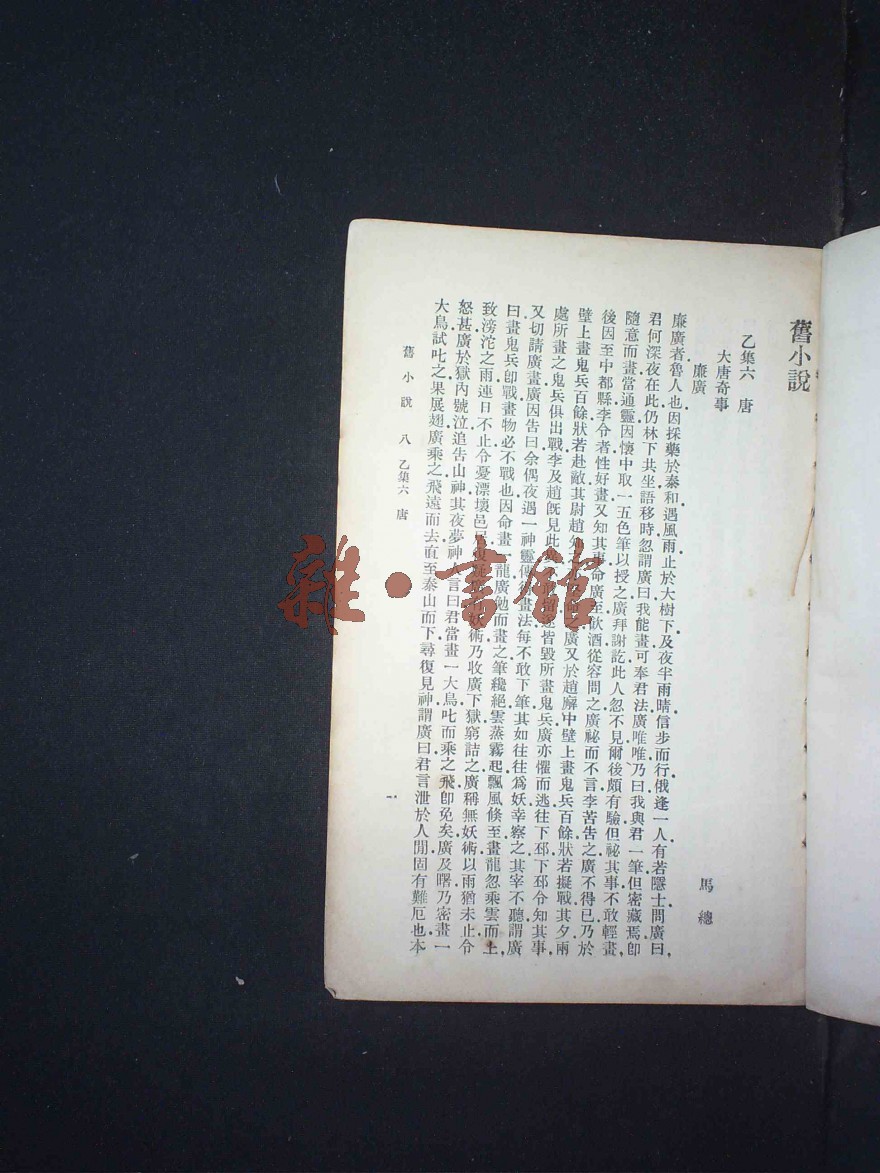 舊小說
乙集六 唐
大唐奇事
馬總
廉廣
廉廣者魯人也因採藥於泰和遇風雨止於大樹下及夜半雨晴信步而行俄逢一人有若隱士問廣曰
君何深夜在此仍林下共坐語移時忽謂廣曰我能畫可奉君法廣唯唯乃曰我與君一筆但密藏焉卽
隨意而畫當通靈因懷中取一五色筆以授之廣拜謝訖此人忽不見爾後頗有驗但祕其事不敢輕畫
後因至中都縣李令者性好畫又知其事命廣至飮酒從容問之廣祕而不言李苦吿之廣不得已乃於
壁上畫鬼兵百餘狀若赴敵其尉趙知之廣又於趙廨中壁上畫鬼兵百餘狀若擬戰其夕兩
處所畫之鬼兵俱出戰李及趙旣見此皆毀所畫鬼兵廣亦懼而逃往下邳下邳令知其事
又切請廣畫廣因吿曰余偶夜遇一神靈傳得畫法每不敢下筆其如往往爲妖幸察之其宰不聽謂廣
曰畫鬼兵卽戰畫物必不戰也因命畫一龍廣勉而畫之筆纔絕雲蒸霧起飄風倏至畫龍忽乘雲而上
致滂沱之雨連日不止令憂漂壞邑妖術乃收廣下獄窮詰之廣稱無妖術以雨猶未止令
怒甚廣於獄內號泣追吿山神其夜夢神人言曰君當畫一大鳥叱而乘之飛卽免矣廣及曙乃密畫一
大鳥試叱之果展翅廣乘之飛遠而去直至泰山而下尋復見神謂廣曰君言泄於人閒固有難厄也本
舊小說 八 乙集六 唐
一
雜·書館